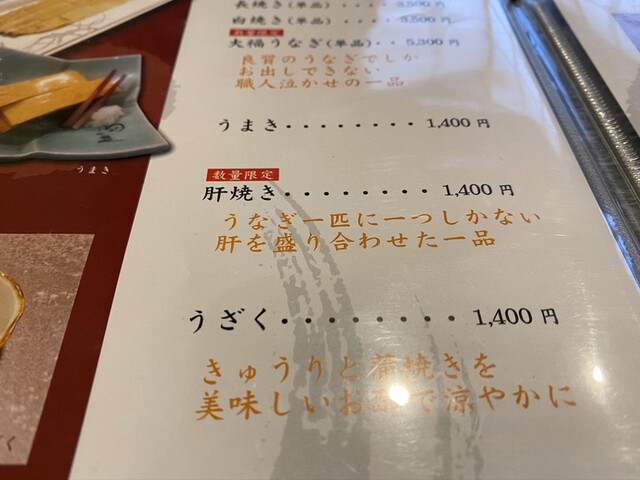 長焼き(単品)・・ 3,500円
白焼き(単品)・・ 3,500円
数量限定
大福うなぎ(単品)・・ 5,300円
良質のうなぎでしか
お出しできない
職人泣かせの一品
うまき・・・・・・・・ 1,400円
うまき
数量限定
肝焼き・・・・・・・・ 1,400円
うなぎ一匹に一つしかない
肝を盛り合わせた一品
うざく・・・・・・・・・ 1,400円
きゅうりと蒲焼きを
美味しいお酢で涼やかに
く